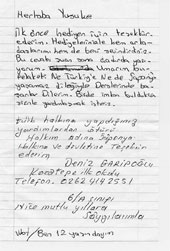 Merhaba Yusuke
İlk önce hediyen için teşekkür
ederim. Hediyelerinle hem arka-
daşlarımı hem de beni sevindirdin.
Bu cevabı sana çadırda yazı-
yorum. Umarım bir
felaket Ne Türkiye Ne de Japonya
yaşamaz dileğiyle Derslerinde ba-
şarılar Dilerim. Bizde imkan buldukça
size yardım etmek isteriz.
Türk halkına yaptığınız
yardımlardan ötürü
Halkım adına Japonya
Halkına ve devletine Teşekkür
ederim
Deniz GARİPOĞLU
Kocatepe ilk okulu
Telefon. 0262 414 2551
6/A sınıfı
Nice mutlu yıllara
Saygılarımla
Not/ Ben 12 yaşındayım